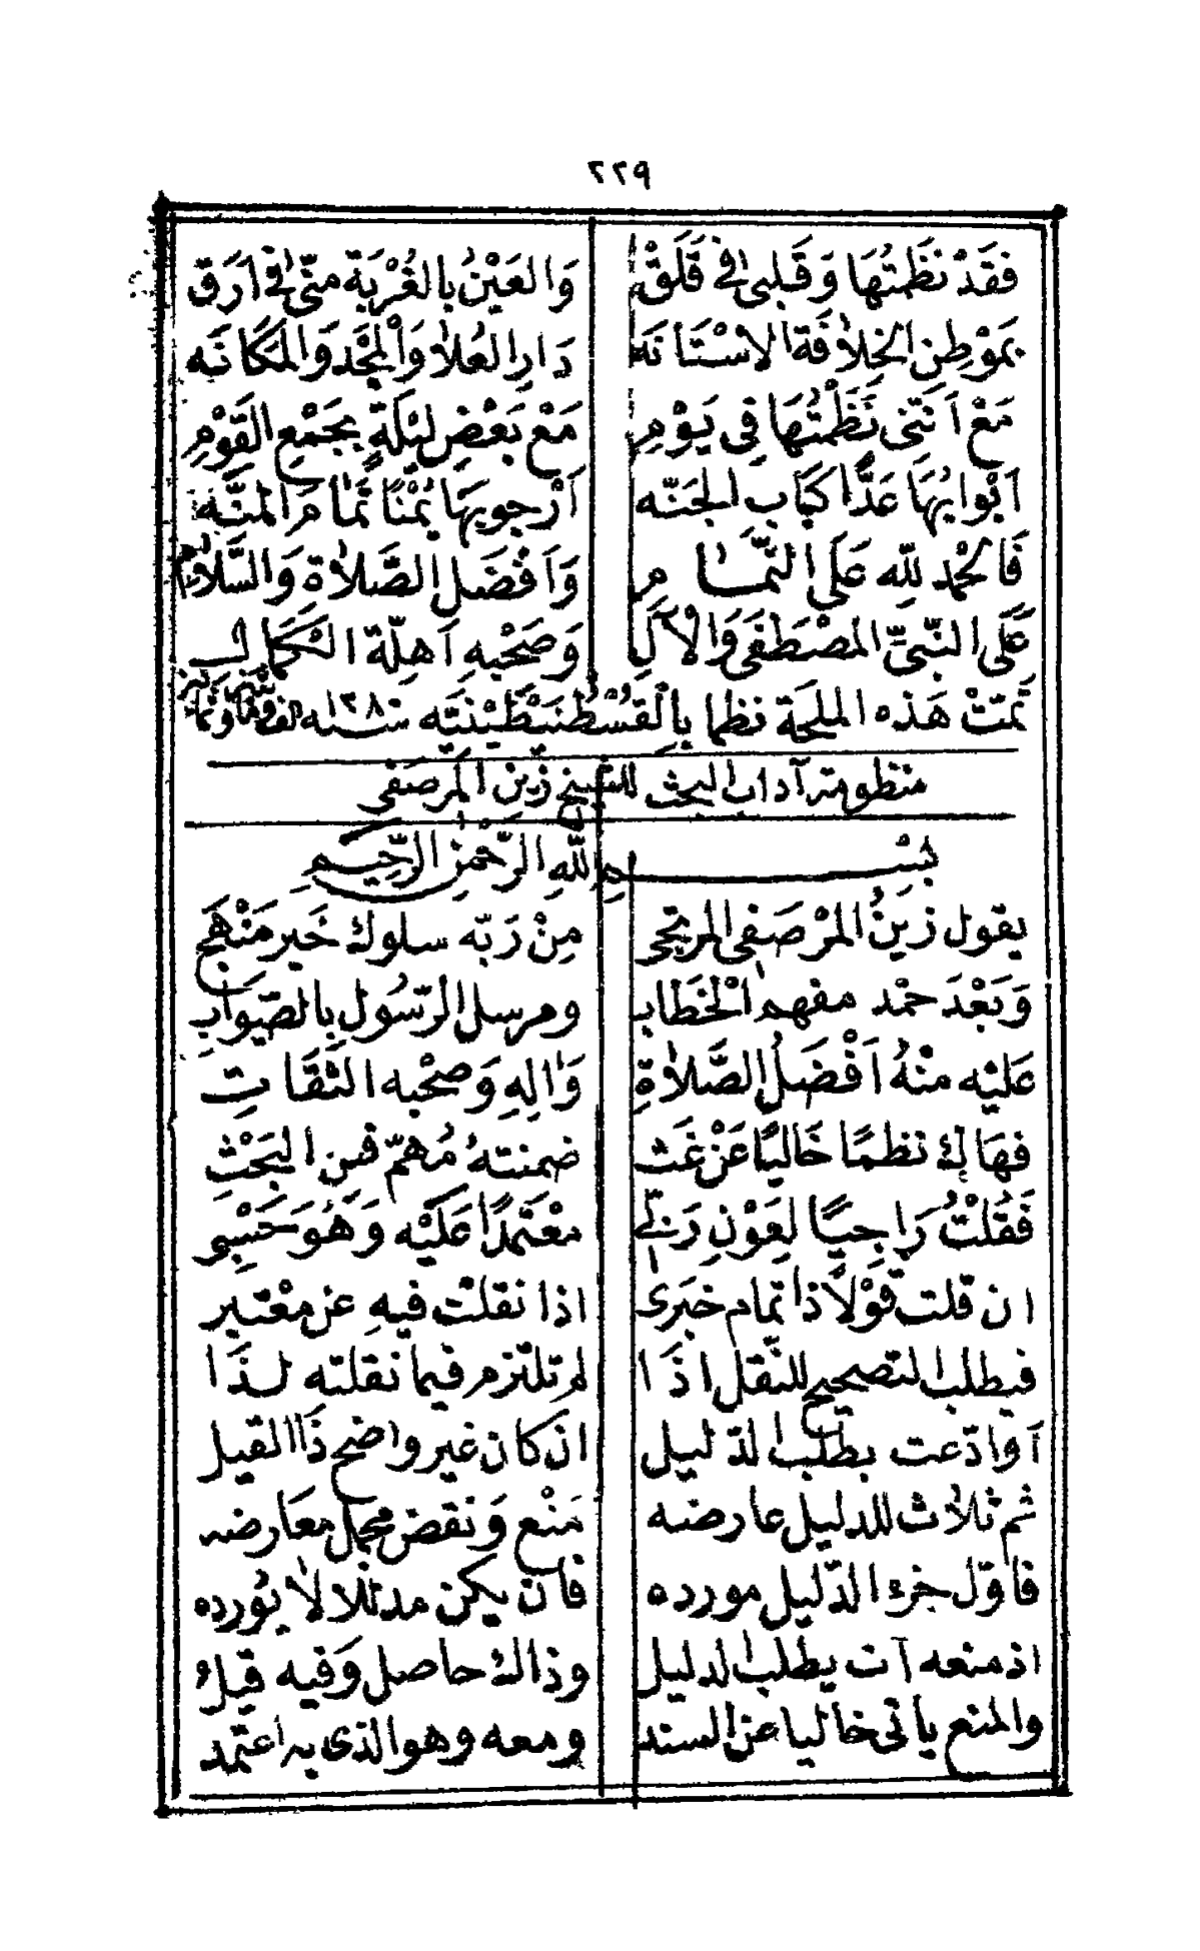 ٢٢٩
فَقَدْ نَظَمْتُهَا وَقَلبى فى قَلَقْ وَالعَيْنُ بالغُرْبَة منّى فى اَرَق
بمَوْطِن الخِلاَفَة الاسْتَانَه دَارِ العُلاَ وَالمَجْد وَالمَكَانَه
مَعْ اَنّنى نَظَمْتُهَا فى يَوْمِ مَعْ بَعْضِ لَيْلَةٍ بجَمْعِ القَوْمِ
اَبْوابُهَا عَدًّا كَبَابِ الجَنّه اَرْجو بهَا يُمْنًا تَمَامَ المنَّه
فَالحمْد للّه عَلَى التّمَامِ وَاَفْضَل الصَّلاَة وَالسَّلاَمِ
عَلَى النَّبىِّ المصْطَفَى وَالآلِ وَصَحْبِهِ اَهِلّة الكَمَالِ
تمّتْ هَذه الملحَة نظما بالقُسْطَنْطِيْنيّه سَنه ١٢٨٨ الف ومائتين وثمانية وثمانين
منظومة آداب البحث للشيخ زين المرصفى
بسْم اللّهِ الرَّحْمٰنِ الرَّحِيمِ
يقول زينُ المرْصَفى المرتجى مِنْ رَبّه سلوك خَير مَنْهَج
وَبَعْدَ حمْد مفهم الْخَطابِ ومرسل الرّسُول بالصّوَابِ
عَليْه منْهُ اَفْضَلُ الصَّلاَةِ وَالِهِ وَصحْبه الثّقَاتِ
فهَاك نظمًا خَاليًا عَنْ غَث ضمنتهُ مُهمّ فن البَحْثِ
فَقُلْتُ رَاجيًا لعَوْنِ رَبّى معْتَمدًا عَلَيْه وَهُوَ حَسْبى
ان قلت قوْلاً ذا تمام خبَرى اذا نقلْت فيهِ عن معْتبر
فيطلب التصحيح للنّقل اذَا لم تلتزم فيما نقلته لذَا
اوادّعت بطلب الدّليل ان كان غير واضح ذَا القيل
ثم ثلاث للدليل عارضه مَنْع وَنقض مجمل معَارضه
فاوّل جزء الدّليل مورده فان يكن مدللا لاَ يُورده
اذ منعه آت بطلب الدليل وذاك حاصل وَفيه قيلُ
والمنع يأتى خاليا عن السند ومعه وهو الذى به اعتمد